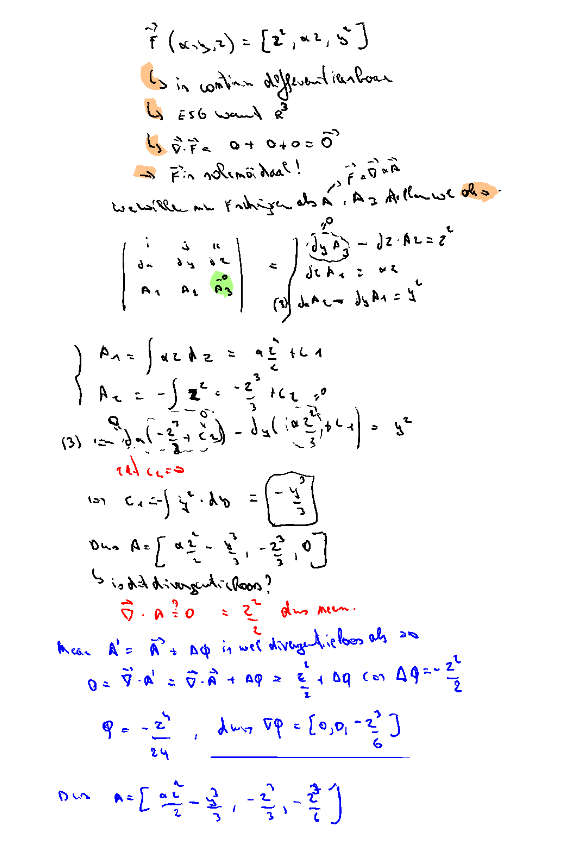 F⃗ (x,y,z) = [z², xz, y²]
↳ is continu differentieerbaar
↳ ESG want R³
↳ ∇⃗·F⃗ = 0 + 0 + 0 = 0⃗
→ F⃗ is solenoïdaal!
F⃗ = ∇⃗ × A⃗
we willen nu F schrijven als A, A3 stellen we als 0.
| i j k | = { dy A3 - dz·A2 = z²
| dx dy dz | dz A1 = xz
| A1 A2 A3 =0 | (3) dx A2 - dy A1 = y²
A1 = ∫ xz dz = x z²/2 + C1
A2 = -∫ z² = -z³/3 + C2
(3) dx(-z³/3 + C2) - dy(x z²/2 + C1) = y²
zet C2 = 0
C1 = -∫ y²·dy = -y³/3
Dus A = [x z²/2 - y³/3, -z³/3, 0]
↳ is dit divergentieloos?
∇⃗·A ?= 0 = z²/2 dus neen.
Maar A' = A⃗ + Δφ is wel divergentieloos als
0 = ∇⃗·A' = ∇⃗·A⃗ + Δφ = z²/2 + Δφ Δφ = -z²/2
φ = -z⁴/24, dus ∇φ = [0, 0, -z³/6]
Dus A = [x z²/2 - y³/3, -z³/3, -z³/6]